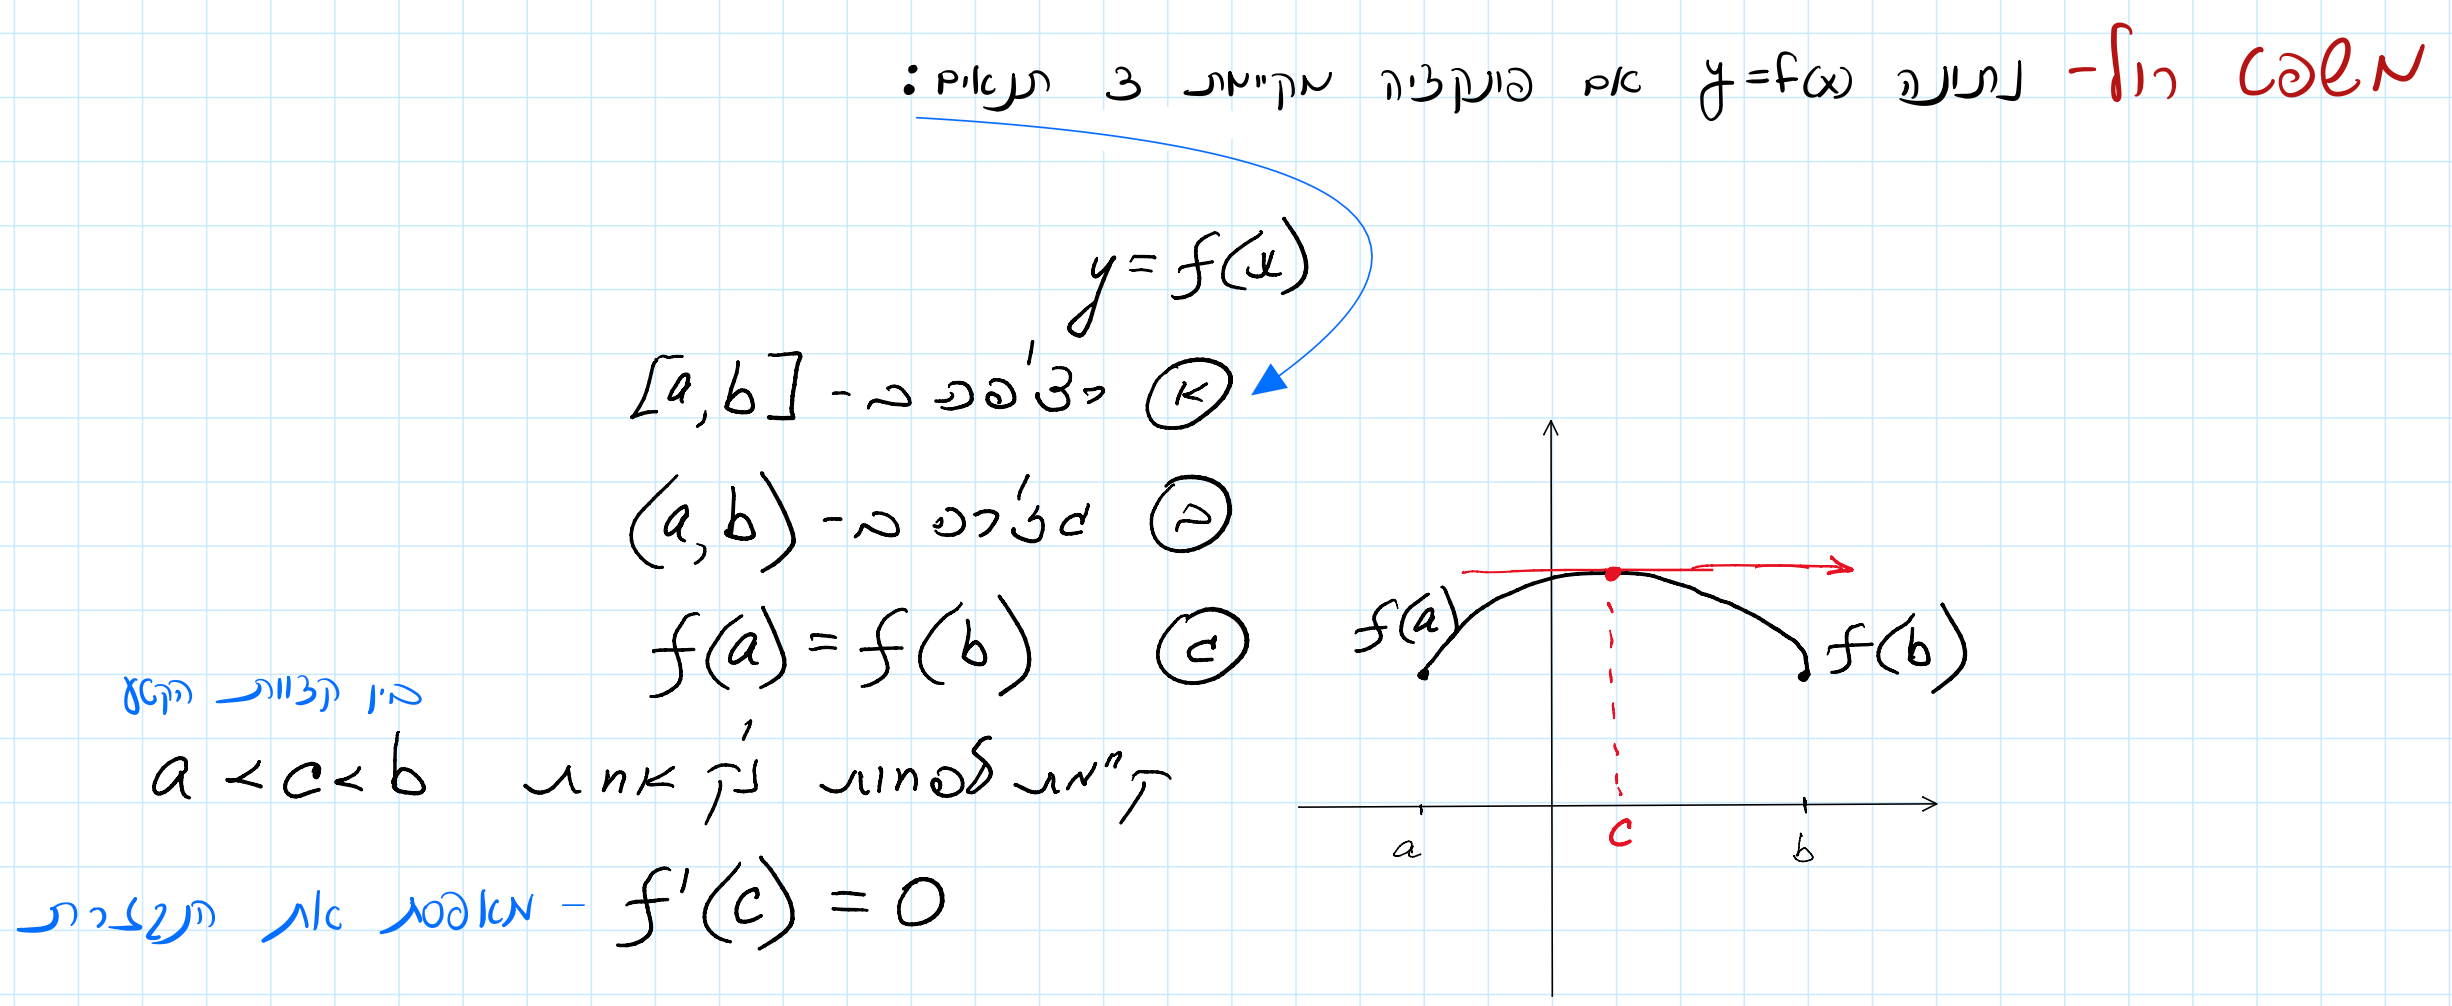 משפט רול- נתונה y=f(x) אם פונקציה מקיימת 3 תנאים:
y = f(x)
א רציפה ב- [a,b]
ב גזירה ב- (a,b)
ג f(a) = f(b)
בין קצוות הקטע
קיימת לפחות נק' אחת a < c < b
f'(c) = 0 - מאפסת את הנגזרת
f(a)
f(b)
a
c
b